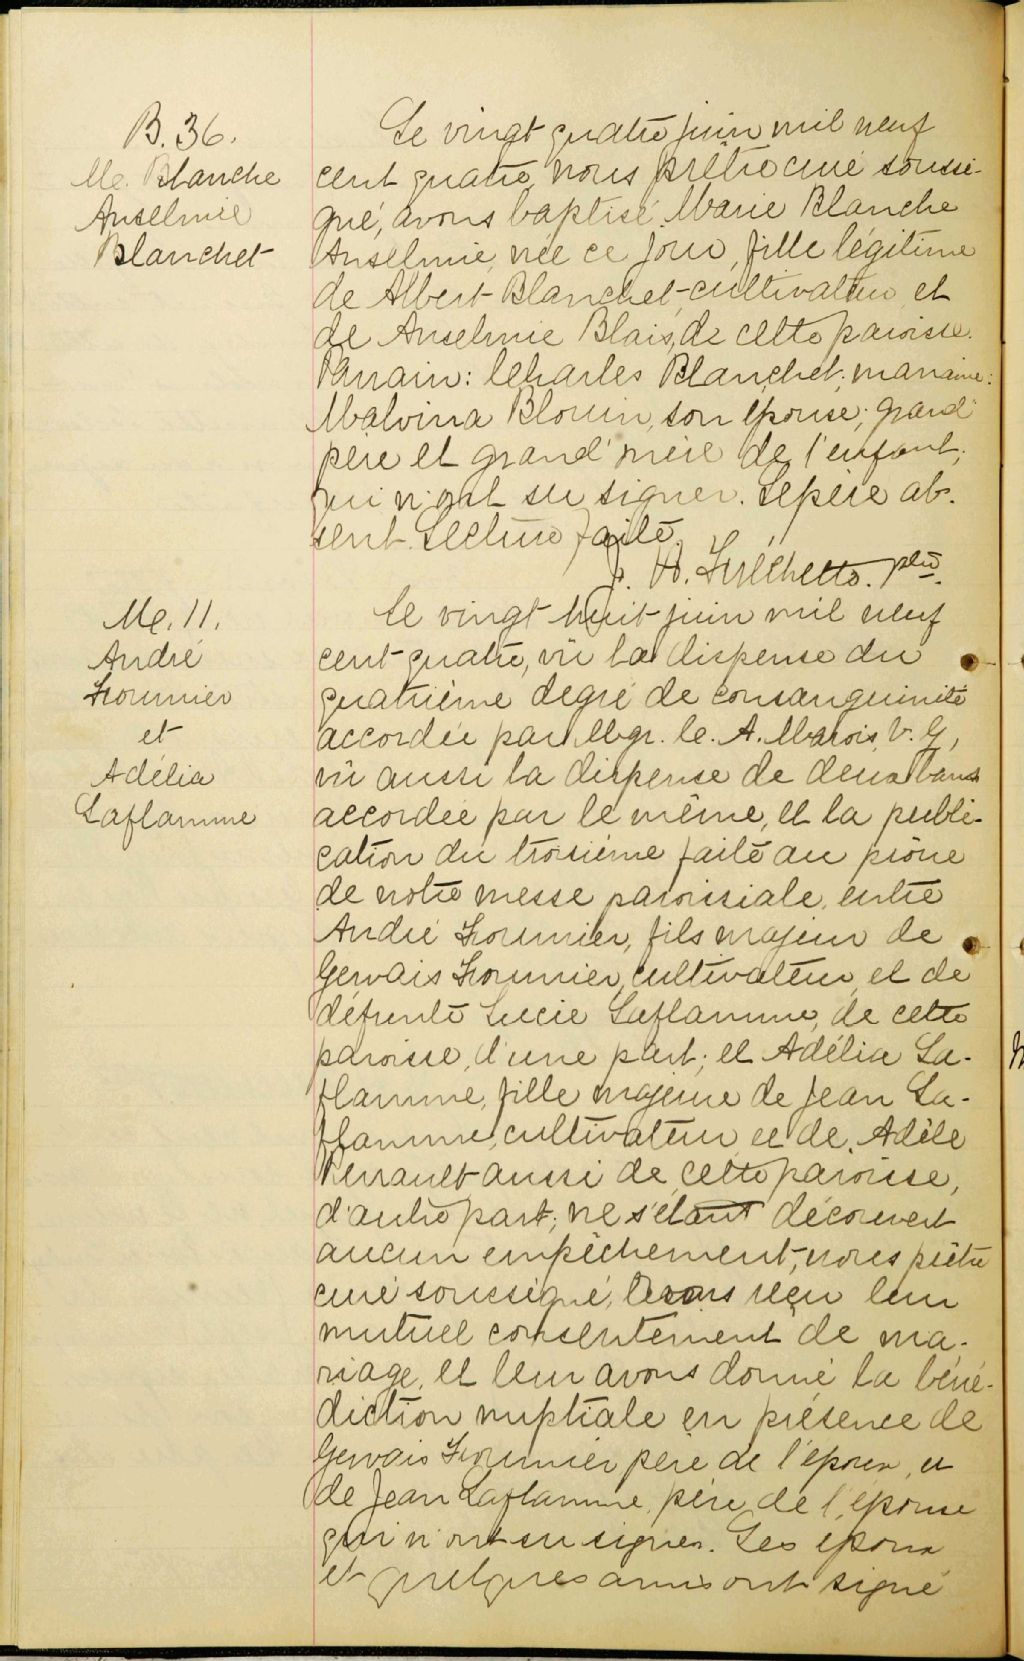 B. 36.
Me. Blanche
Anselmie
Blanchet
Le vingt quatre juin mil neuf
cent quatre, nous prêtre curé soussi-
gné, avons baptisé Marie Blanche
Anselmie, née ce jour, fille légitime
de Albert Blanchet, cultivateur et
de Anselmie Blais, de cette paroisse.
Parrain: Charles Blanchet; marraine:
Malvina Blouin, son épouse; grand
père et grand'mère de l'enfant,
qui n'ont su signer. Le père ab-
sent. Lecture faite.
J. H. Fréchette. ptre.
M. 11.
André
Fournier
et
Adélia
Laflamme
Le vingt huit juin mil neuf
cent quatre, vu la dispense du
quatrième degré de consanguinité
accordée par Mgr. C. A. Marois, V. G,
vu aussi la dispense de deux bans
accordée par le même, et la publi-
cation du troisième faite au prône
de notre messe paroissiale, entre
André Fournier, fils majeur de
Gervais Fournier, cultivateur, et de
défunte Lucie Laflamme, de cette
paroisse, d'une part; et Adélia La-
flamme, fille majeure de Jean La-
flamme, cultivateur et de Adèle
aussi de cette paroisse,
d'autre part; ne s'étant découvert
aucun empêchement, nous prêtre
curé soussigné, avons reçu leur
mutuel consentement de ma-
riage, et leur avons donné la béné-
diction nuptiale en présence de
Gervais Fournier père de l'époux, et
de Jean Laflamme, père de l'épouse
qui n'ont su signer. Les époux
et quelques amis ont signé